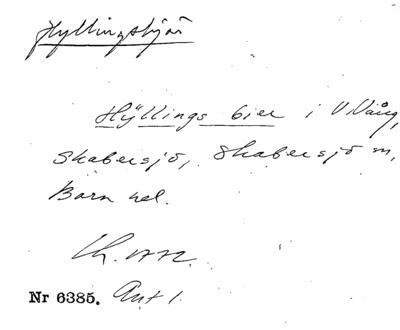 Hyllingsbjär
Hÿllings bier i V Vång,
Skabersjö, Skabersjö sn,
Bara hd.
Nr 6385. Ant 1.